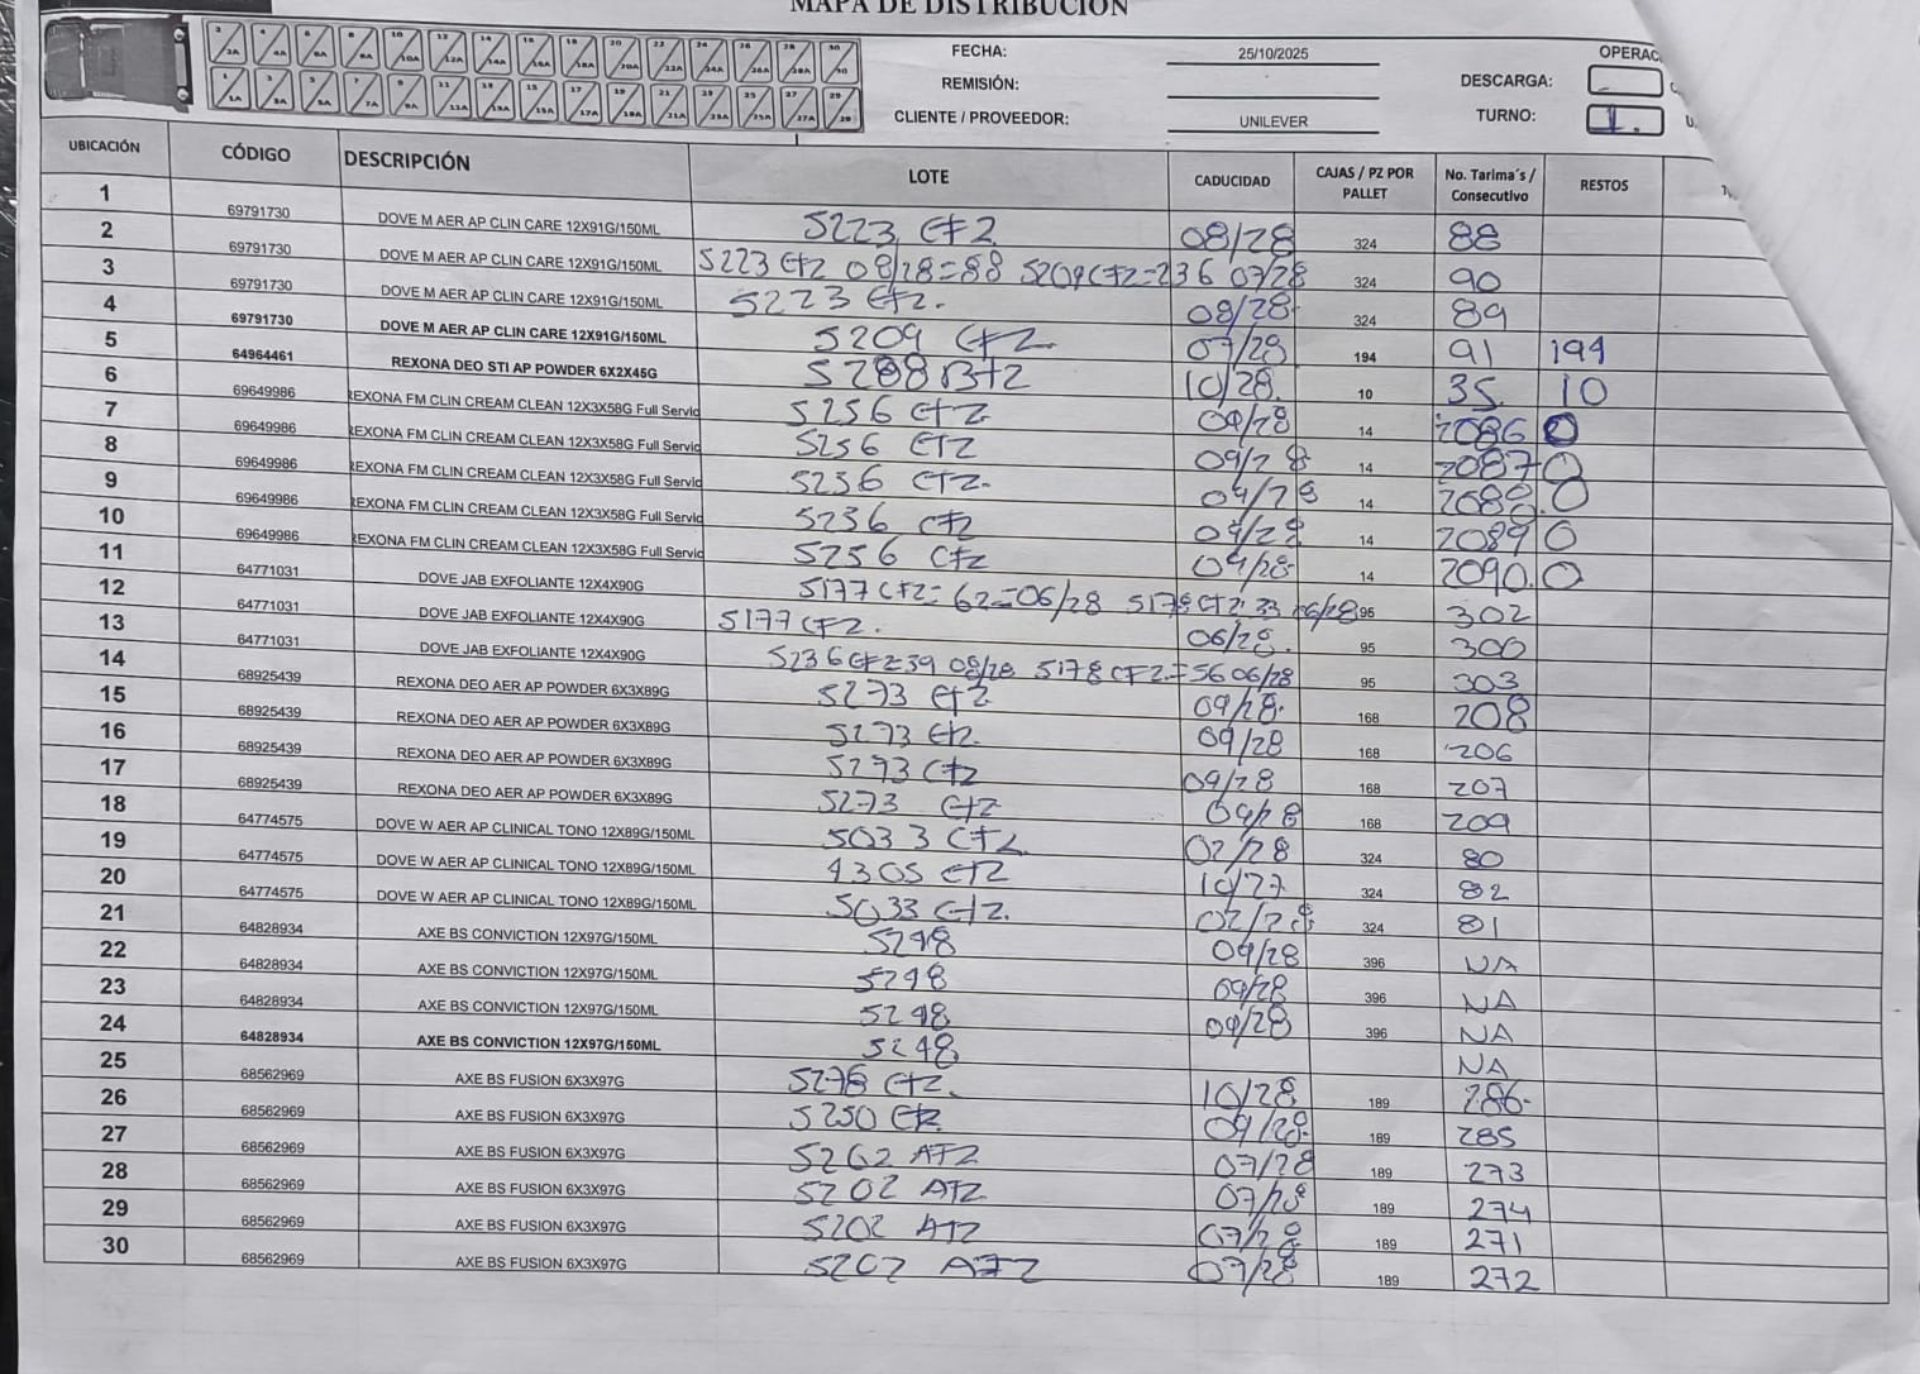 MAPA DE DISTRIBUCIÓN
FECHA: 25/10/2025 OPERAC
REMISIÓN: DESCARGA:
CLIENTE / PROVEEDOR: UNILEVER TURNO: 1.
UBICACIÓN CÓDIGO DESCRIPCIÓN LOTE CADUCIDAD CAJAS / PZ POR PALLET No. Tarima´s / Consecutivo RESTOS
1 69791730 DOVE M AER AP CLIN CARE 12X91G/150ML 5223 CF2 08/28 324 88
2 69791730 DOVE M AER AP CLIN CARE 12X91G/150ML 5223 CF2 08/28=88 5209 CF2=236 07/28 324 90
3 69791730 DOVE M AER AP CLIN CARE 12X91G/150ML 5223 CF2. 08/28 324 89
4 69791730 DOVE M AER AP CLIN CARE 12X91G/150ML 5209 CF2 07/28 194 91 194
5 64964461 REXONA DEO STI AP POWDER 6X2X45G 5288 BF2 10/28. 10 35. 10
6 69649986 REXONA FM CLIN CREAM CLEAN 12X3X58G Full Servic 5256 CF2 09/28 14 2086 0
7 69649986 REXONA FM CLIN CREAM CLEAN 12X3X58G Full Servic 5256 CF2 09/28 14 2087 0
8 69649986 REXONA FM CLIN CREAM CLEAN 12X3X58G Full Servic 5256 CF2. 09/28 14 2088. 0
9 69649986 REXONA FM CLIN CREAM CLEAN 12X3X58G Full Servic 5256 CF2 09/28 14 2089 0
10 69649986 REXONA FM CLIN CREAM CLEAN 12X3X58G Full Servic 5256 CF2 09/28 14 2090. 0
11 64771031 DOVE JAB EXFOLIANTE 12X4X90G 5177 CF2=62=06/28 5178 CF2=33 06/28 95 302
12 64771031 DOVE JAB EXFOLIANTE 12X4X90G 5177 CF2. 06/28. 95 300
13 64771031 DOVE JAB EXFOLIANTE 12X4X90G 5236 CF2=39 08/28 5178 CF2=56 06/28 95 303
14 68925439 REXONA DEO AER AP POWDER 6X3X89G 5273 CF2 09/28. 168 208
15 68925439 REXONA DEO AER AP POWDER 6X3X89G 5273 CF2. 09/28 168 206
16 68925439 REXONA DEO AER AP POWDER 6X3X89G 5273 CF2 09/28 168 207
17 68925439 REXONA DEO AER AP POWDER 6X3X89G 5273 CF2 09/28 168 209
18 64774575 DOVE W AER AP CLINICAL TONO 12X89G/150ML 5033 CF2 02/28 324 80
19 64774575 DOVE W AER AP CLINICAL TONO 12X89G/150ML 4305 CF2 10/27 324 82
20 64774575 DOVE W AER AP CLINICAL TONO 12X89G/150ML 5033 CF2. 02/28 324 81
21 64828934 AXE BS CONVICTION 12X97G/150ML 5248 09/28 396 NA
22 64828934 AXE BS CONVICTION 12X97G/150ML 5248 09/28 396 NA
23 64828934 AXE BS CONVICTION 12X97G/150ML 5248 09/28 396 NA
24 64828934 AXE BS CONVICTION 12X97G/150ML 5248 NA
25 68562969 AXE BS FUSION 6X3X97G 5278 CF2. 10/28 189 286.
26 68562969 AXE BS FUSION 6X3X97G 5250 CF2. 09/28. 189 285
27 68562969 AXE BS FUSION 6X3X97G 5202 AF2 07/28 189 273
28 68562969 AXE BS FUSION 6X3X97G 5202 AF2 07/28 189 274
29 68562969 AXE BS FUSION 6X3X97G 5202 AF2 07/28 189 271
30 68562969 AXE BS FUSION 6X3X97G 5202 AF2 07/28 189 272